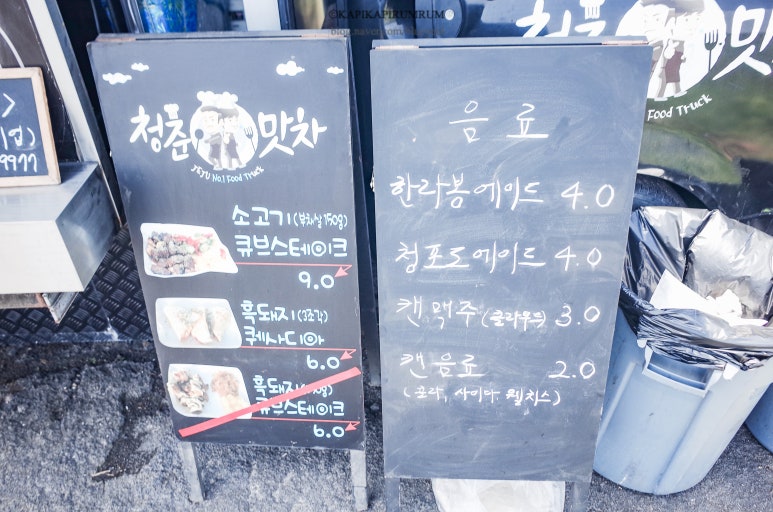 ©KAPIKAPIRUNRUM
9977
청춘 맛차
JEJU No.1 Food Truck
소고기(부채살 150g)
큐브스테이크
9.0
흑돼지(3조각)
퀘사디아
6.0
흑돼지
큐브스테이크
6.0
음료
한라봉에이드 4.0
청포도에이드 4.0
캔맥주(클라우드) 3.0
캔음료 2.0
(콜라, 사이다, 웰치스)
맛
Food Truck